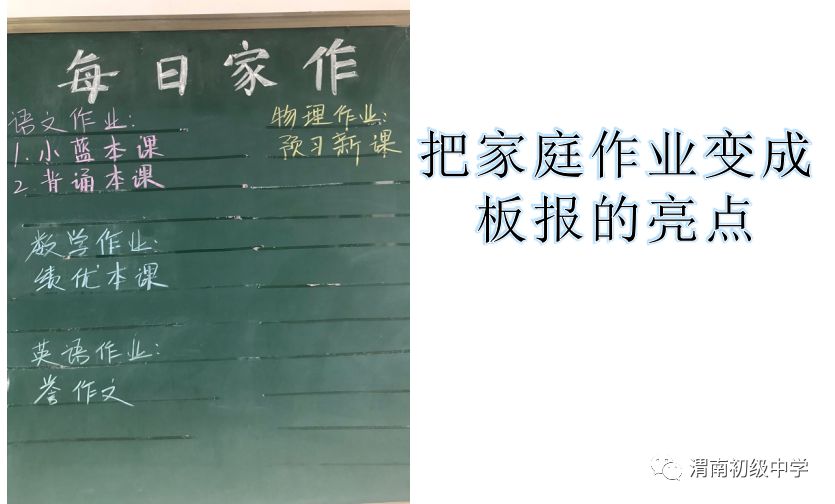 每日家作
语文作业:
1.小蓝本课
2.背诵本课
物理作业:
预习新课
数学作业:
绩优本课
英语作业:
誊作文
把家庭作业变成
板报的亮点
渭南初级中学